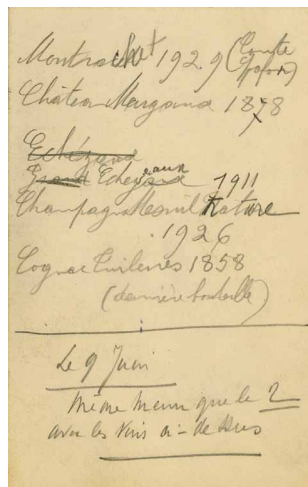 Montrachet 1929 (Comte Lafon)
Château Margaux 1878
Echézeaux
Grand Echezeaux 1911
Champagne Mesnil Nature
1926
Cognac 1858
(dernière bouteille)
Le 9 Juin
même menu que le 2
avec les vins ci-dessus